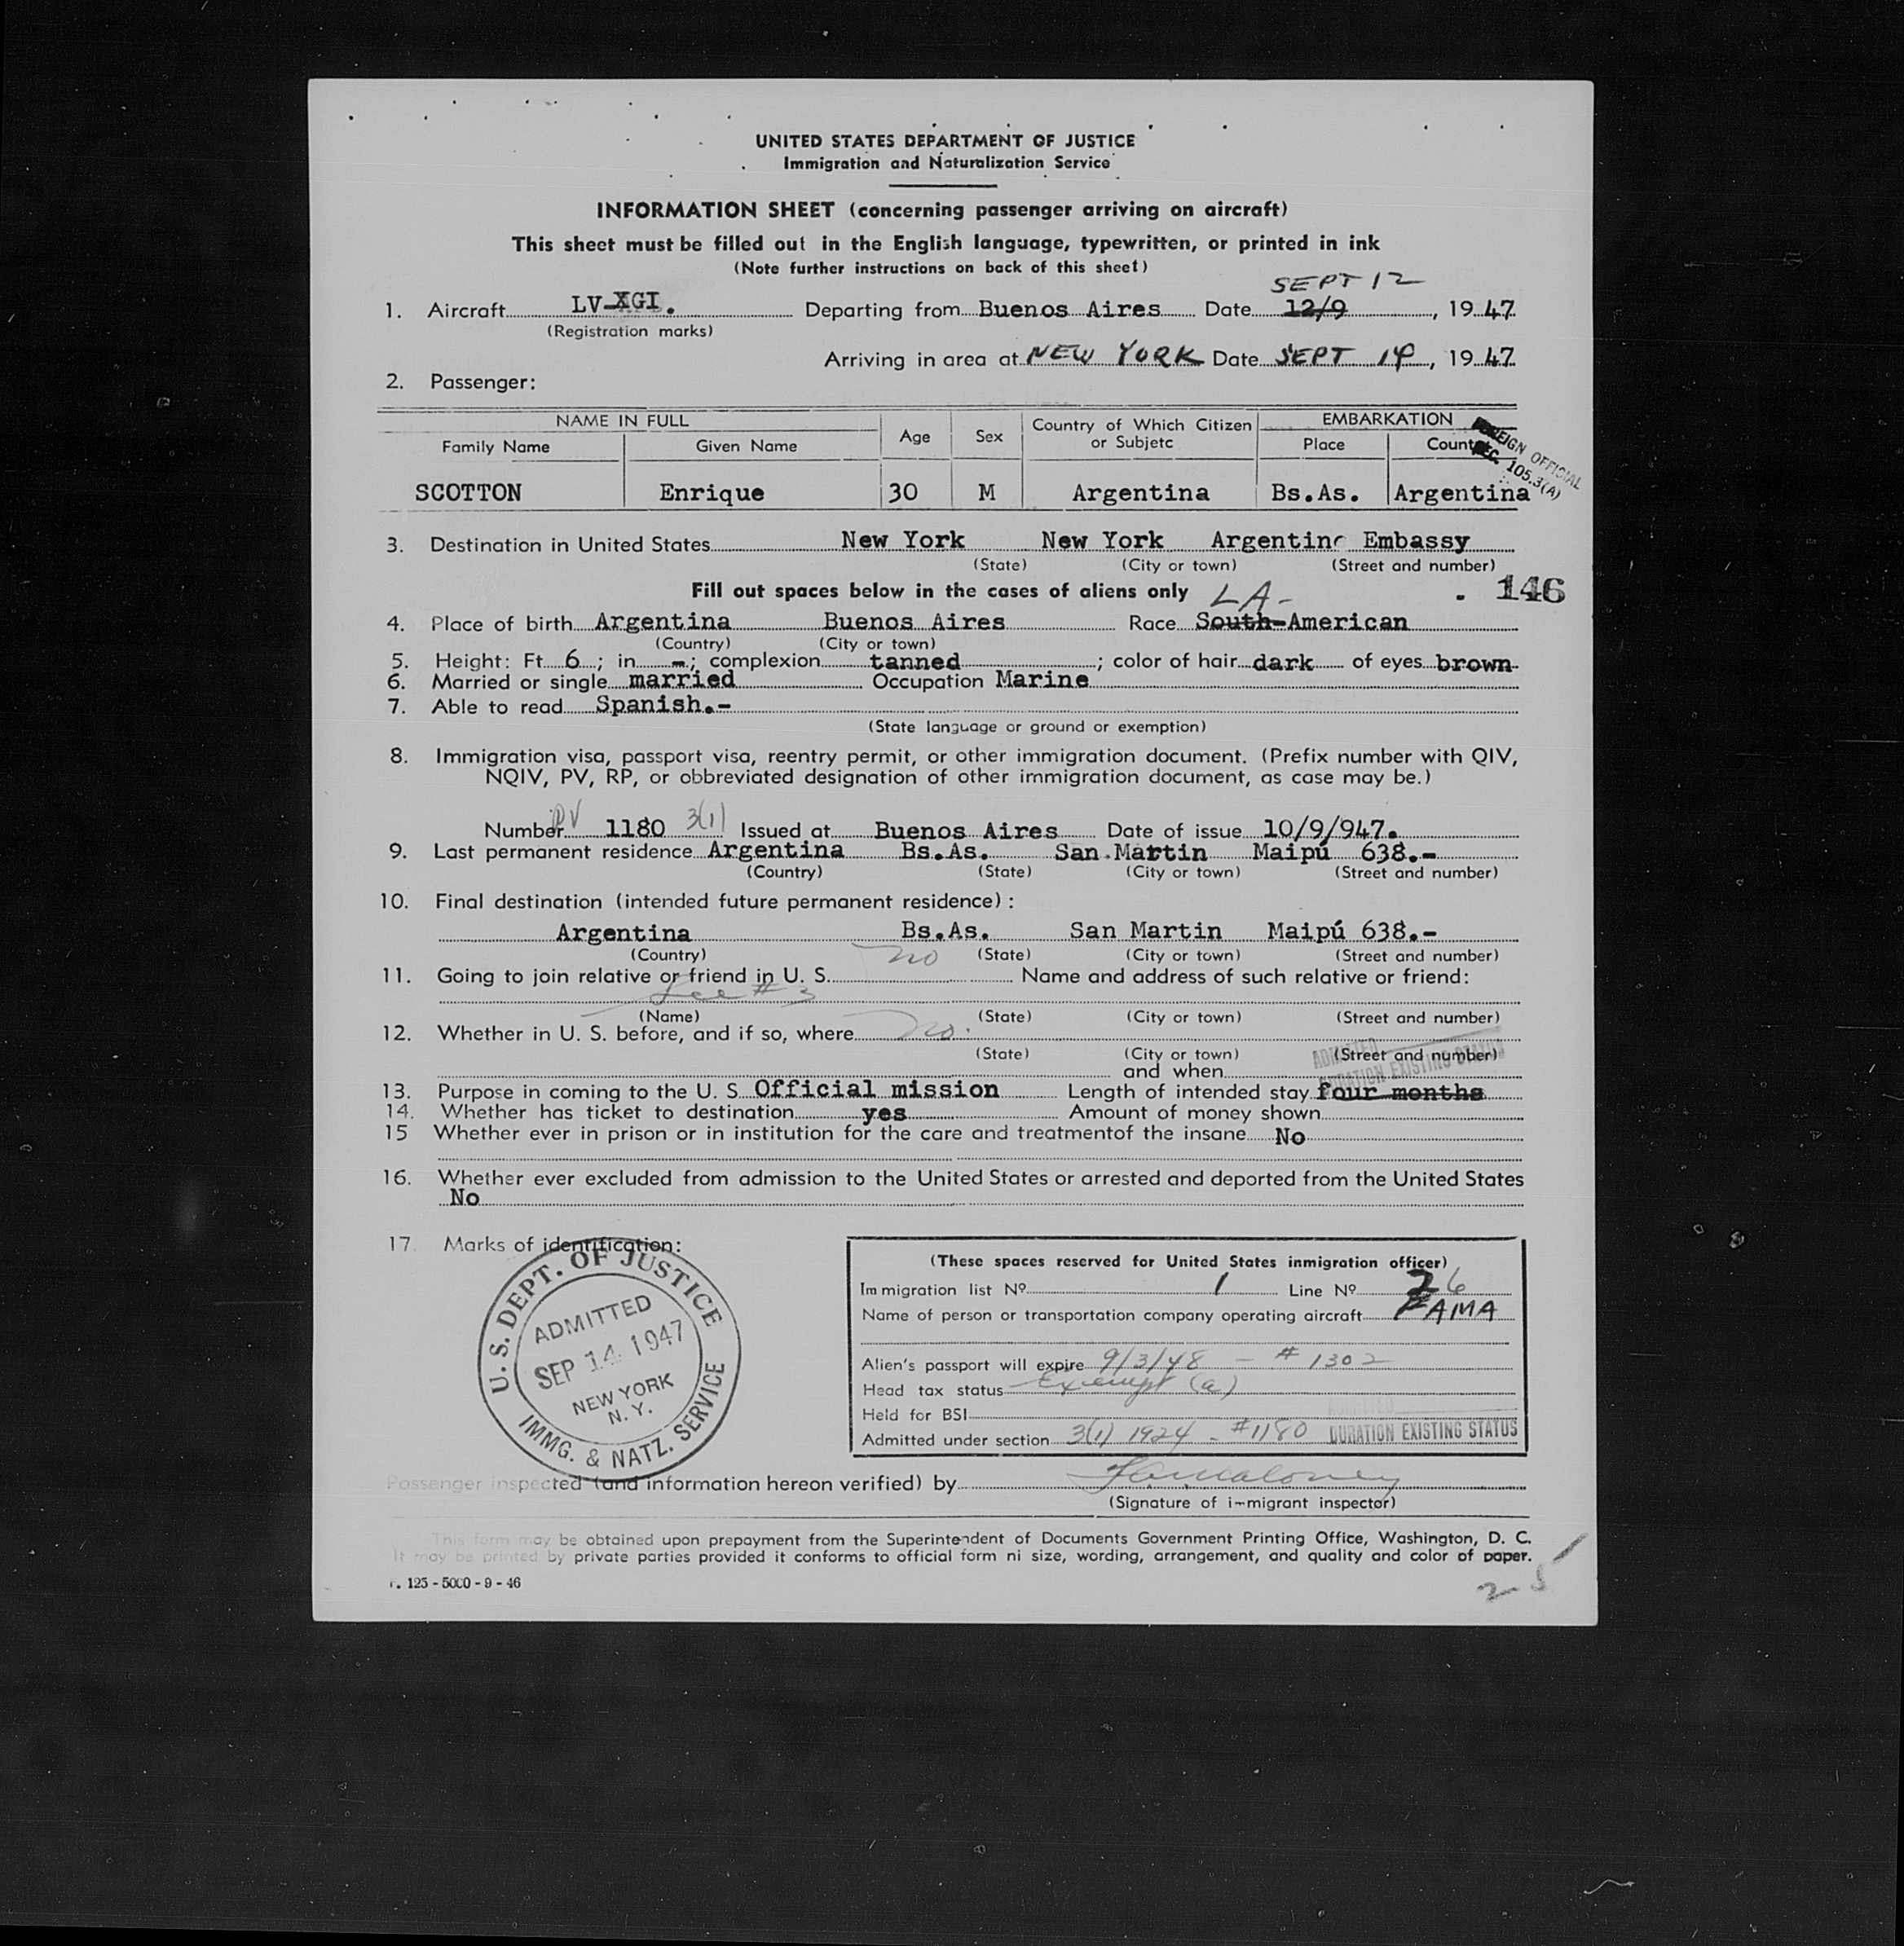 UNITED STATES DEPARTMENT OF JUSTICE
Immigration and Naturalization Service
INFORMATION SHEET (concerning passenger arriving on aircraft)
This sheet must be filled out in the English language, typewritten, or printed in ink
(Note further instructions on back of this sheet)
SEPT 12
1. Aircraft LV-XGI. Departing from Buenos Aires Date 12/9, 19 47
(Registration marks)
Arriving in area at NEW YORK Date SEPT 14, 19 47
2. Passenger:
NAME IN FULL Age Sex Country of Which Citizen or Subjetc EMBARKATION
Family Name Given Name Place Count
FOREIGN OFFICIAL
SEC. 105.3(A)
SCOTTON Enrique 30 M Argentina Bs.As. Argentina
3. Destination in United States New York New York Argentine Embassy
(State) (City or town) (Street and number)
Fill out spaces below in the cases of aliens only LA- 146
4. Place of birth Argentina Buenos Aires Race South-American
(Country) (City or town)
5. Height: Ft 6; in -; complexion tanned; color of hair dark of eyes brown
6. Married or single married Occupation Marine
7. Able to read Spanish.-
(State language or ground or exemption)
8. Immigration visa, passport visa, reentry permit, or other immigration document. (Prefix number with QIV,
NQIV, PV, RP, or obbreviated designation of other immigration document, as case may be.)
Number PV 1180 3(1) Issued at Buenos Aires Date of issue 10/9/947.
9. Last permanent residence Argentina Bs.As. San Martin Maipú 638.-
(Country) (State) (City or town) (Street and number)
10. Final destination (intended future permanent residece):
Argentina Bs.As. San Martin Maipú 638.-
(Country) (State) (City or town) (Street and number)
11. Going to join relative or friend in U. S. no Name and address of such relative or friend:
See # 3
(Name) (State) (City or town) (Street and number)
12. Whether in U. S. before, and if so, where no.
(State) (City or town) (Street and number)
and when
ADMITTED
DURATION EXISTING STATUS
13. Purpose in coming to the U. S. Official mission Length of intended stay four months
14. Whether has ticket to destination yes Amount of money shown
15 Whether ever in prison or in institution for the care and treatmentof the insane No
16. Whether ever excluded from admission to the United States or arrested and deported from the United States
No
17. Marks of identification:
U.S. DEPT. OF JUSTICE
ADMITTED
SEP 14 1947
NEW YORK
N. Y.
IMMG. & NATZ. SERVICE
(These spaces reserved for United States inmigration officer)
Immigration list Nº 1 Line Nº 26
Name of person or transportation company operating aircraft FAMA
Alien's passport will expire 9/3/48 - # 1302
Head tax status Exempt (a)
Held for BSI
Admitted under section 3(1) 1924 - #1180 DURATION EXISTING STATUS
Passenger inspected (and information hereon verified) by
(Signature of i-migrant inspector)
This form may be obtained upon prepayment from the Superintendent of Documents Government Printing Office, Washington, D. C.
It may be printed by private parties provided it conforms to official form ni size, wording, arrangement, and quality and color of paper.
F. 125 - 5000 - 9 - 46